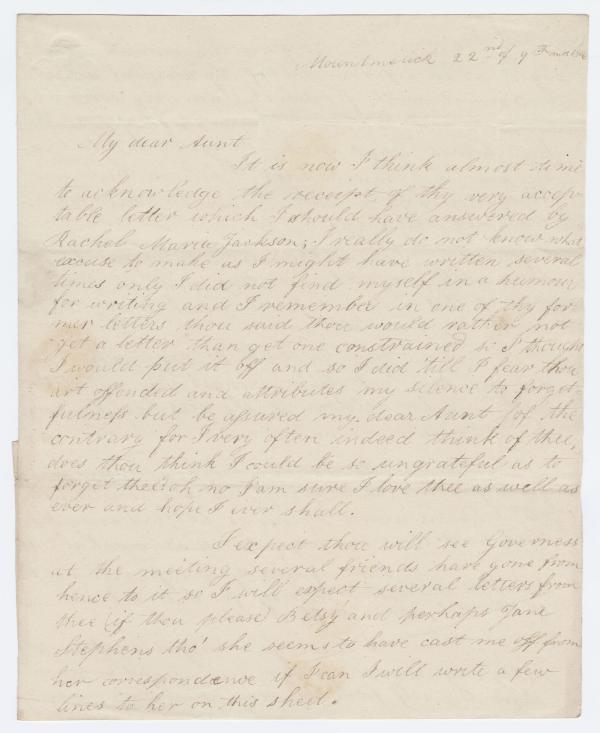 Mountmelick 22nd of 9th
My dear Aunt
It is now I think almost time
to acknowledge the receipt of thy very accep-
table letter which I should have answered by
Rachel Maria Jackson; I really do not know what
excuse to make as I might have written several
times only I did not find myself in a humour
for writing and I remember in one of thy for-
mer letters thou said thou would rather not
get a letter than get one constrained so I thought
I would put it off and so I did 'till I fear thou
art offended and attributes my silence to forget-
fulness but be assured my dear Aunt of the
contrary for I very often indeed think of thee,
does thou think I could be so ungrateful as to
forget thee oh no I am sure I love thee as well as
ever and hope I ever shall.
I expect thou will see Governess
at the meeting several friends have gone from
hence to it so I will expect several letters from
thee (if thou please) Betsy and perhaps Jane
Stephens tho' she seems to have cast me off from
her correspondence if I can I will write a few
lines to her on this sheet.